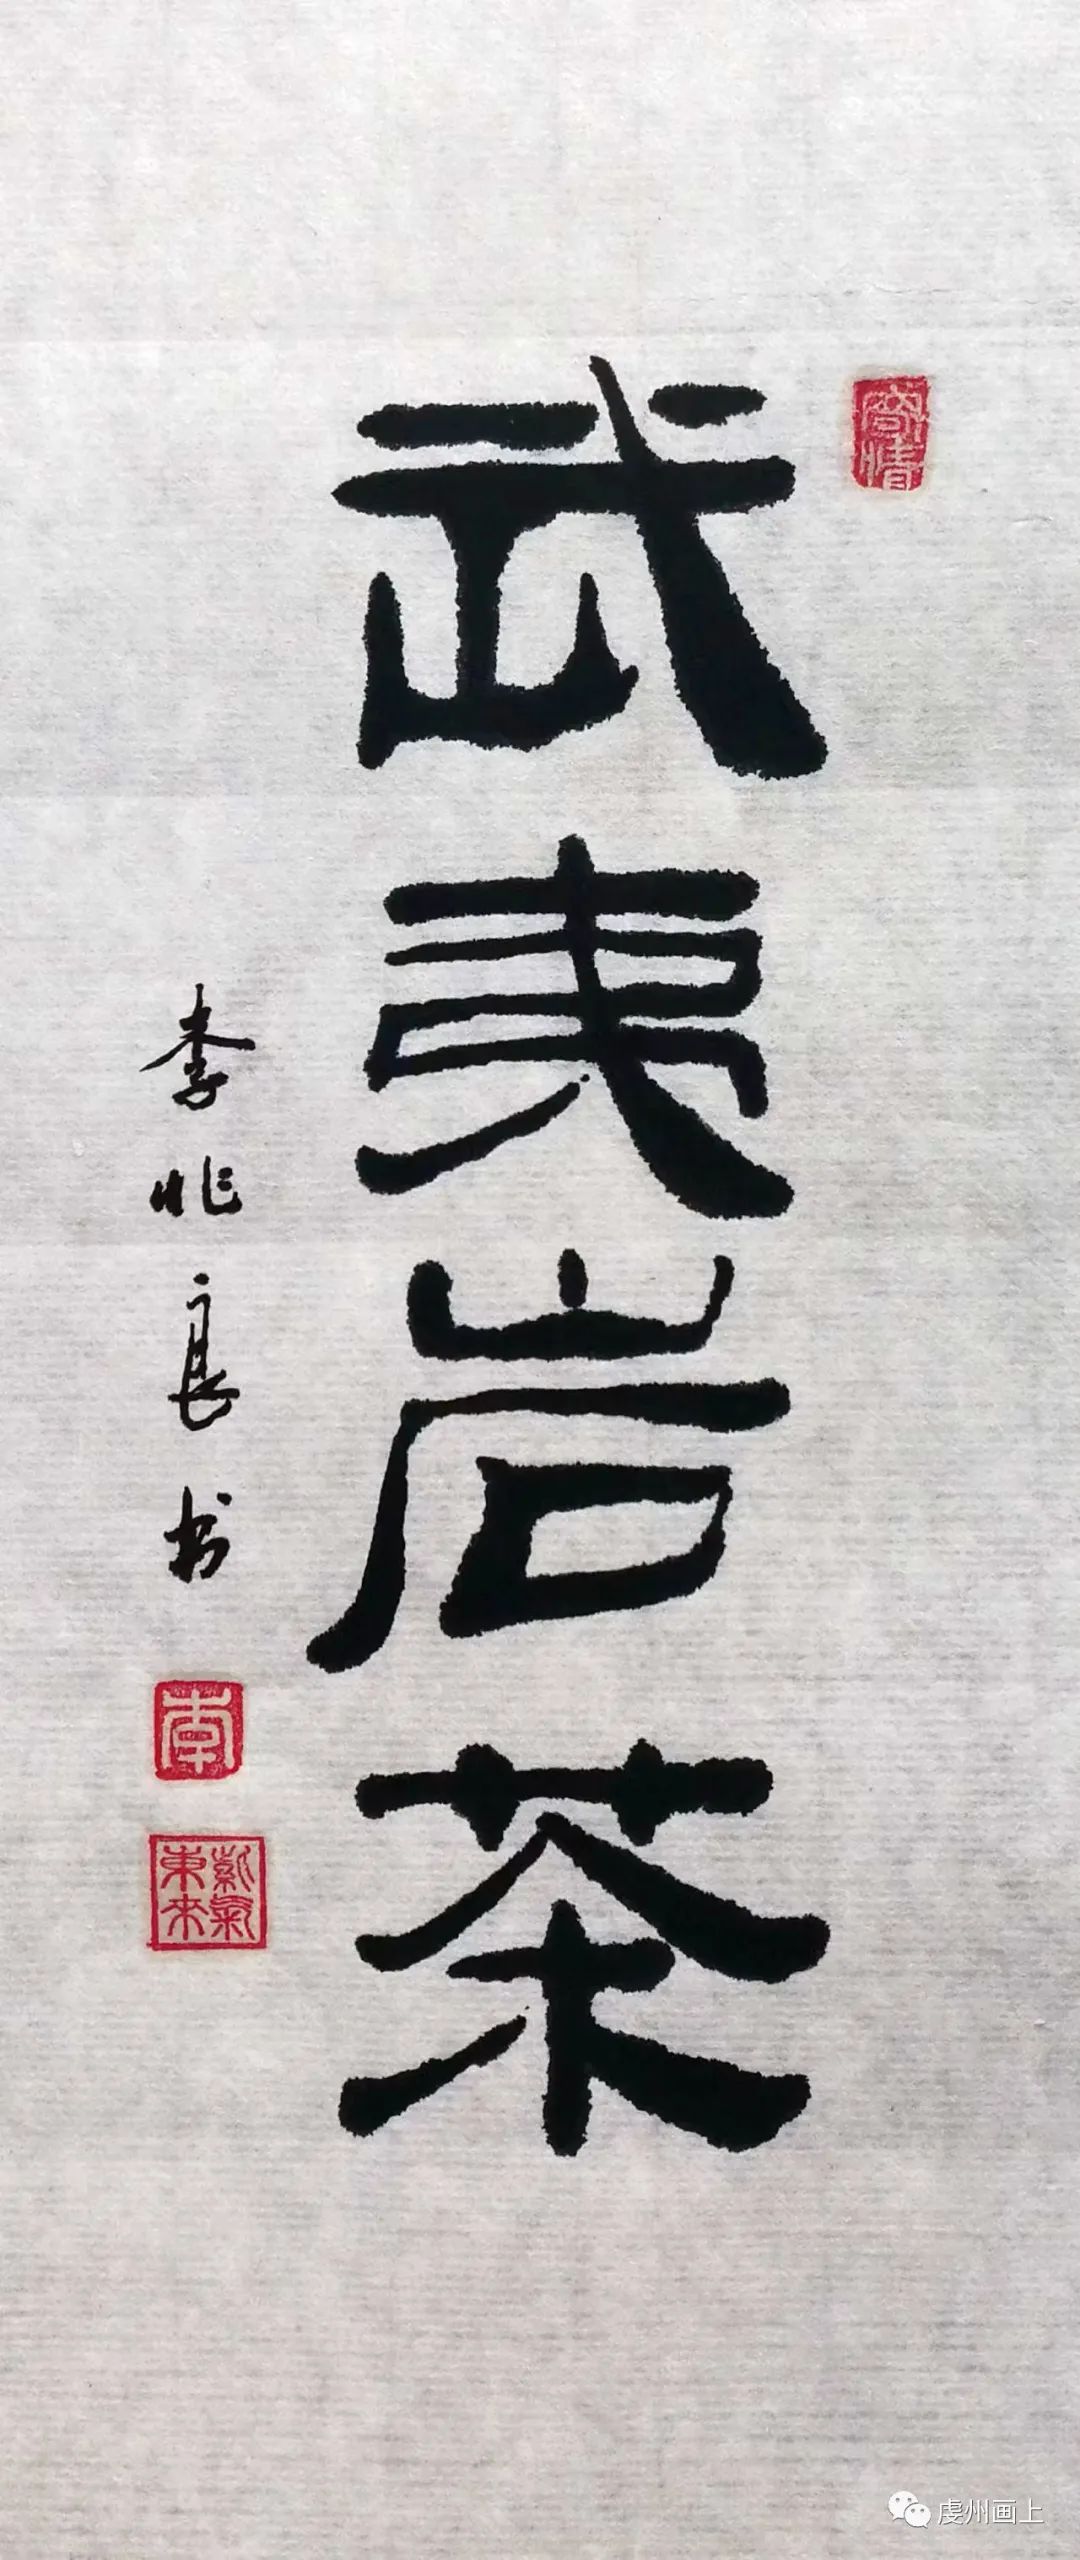 武夷岩茶
寄情
李兆良书
李
紫氣東來
虔州画上